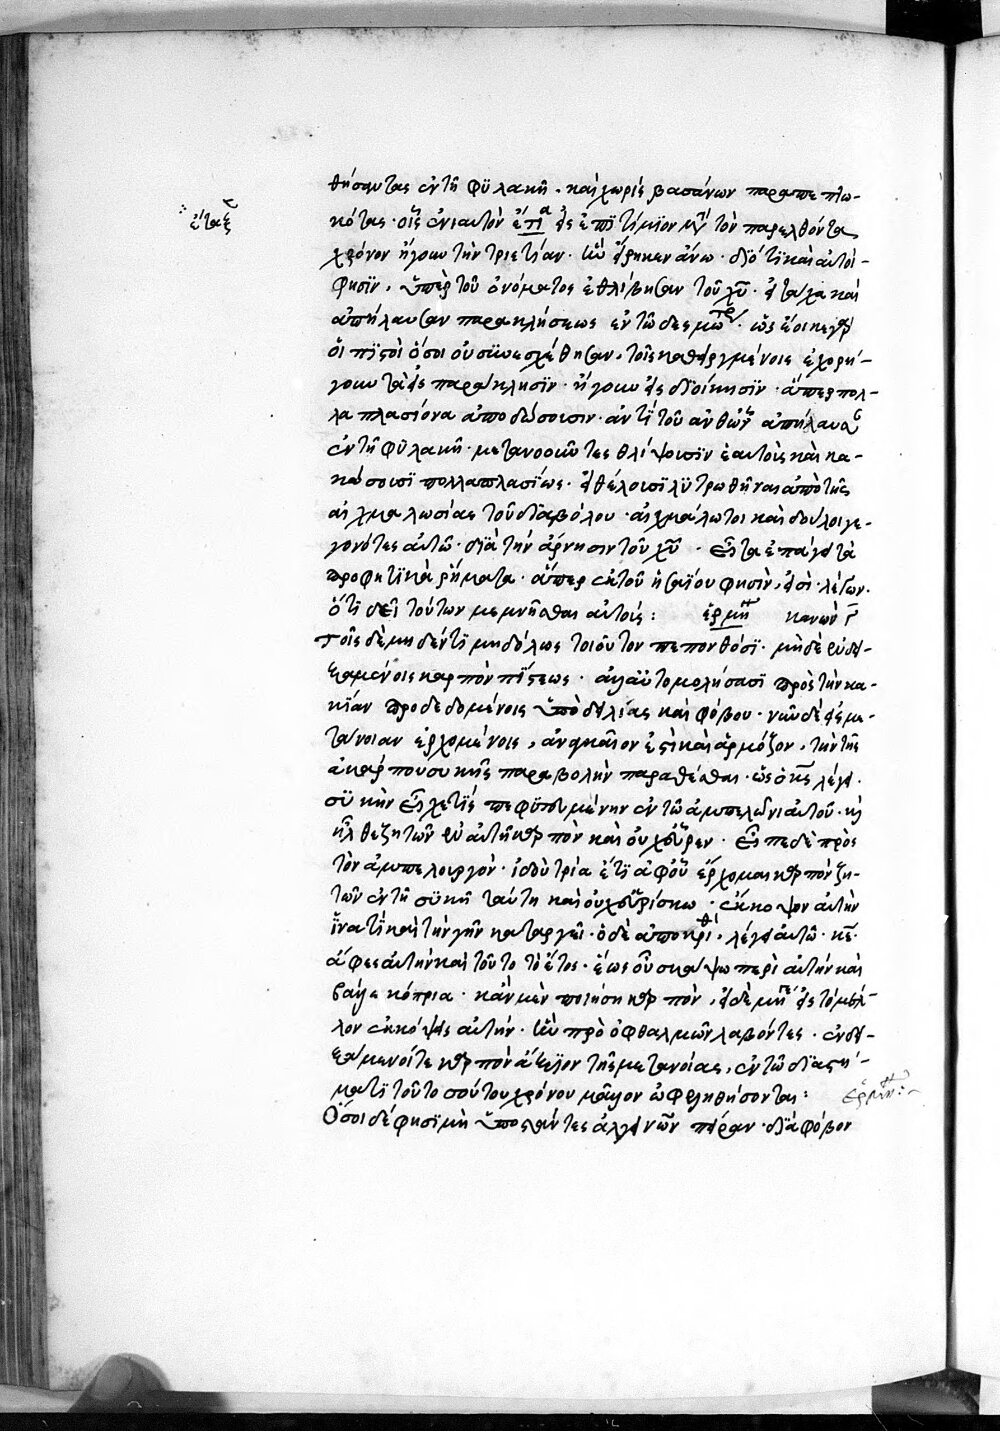 θήσαντας ἐν τῇ φϋλακῇ · καὶ χωρὶς βασάνων παραπεπτω-
ἔταξ
κότας · οἷς ἐνιαυτὸν ἔτι εἰς ἐπϊτίμϊον μετὰ τὸν παρελθόντα
χρόνον ἤγουν τὴν τριετίαν · ὡς εἴρηκεν ἄνω · διότϊ καὶ αὐτοί
φησϊν · ὑπὲρ τοῦ ὀνόματος ἐθλίβησαν τοῦ χῦ · εἰ τάχα καὶ
ἀπήλαυσαν παρακλήσεως ἐν τῷ δεσμωτηρ · ὡς ἔοικε γὰρ
οἱ πϊστοὶ ὅσοι οὐ συνεσχέθησαν · τοῖς καθειργμένοις ἐχορή-
γουν τὰ εἰς παράκλησϊν · ἤγουν εἰς διοίκησϊν · ἅπερ πολ-
λαπλασίονα ἀποδώσουσιν · ἀντϊ τοῦ ἀνθ' ὧν ἀπήλαυσ
ἐν τῇ φϋλακῇ · μετανοοῦντες θλίψουσϊν ἑαυτοὺς καὶ κα-
κώσουσϊ πολλαπλασίως · εἰ θέλουσϊ λϋτρωθῆναι ἀπὸ τῆς
αἰχμαλωσίας τοῦ διαβόλου · αἰχμάλωτοι καὶ δοῦλοι γε-
γονότες αὐτῷ · διὰ τὴν ἄρνησιν τοῦ χῦ · εἶτα ἐπάγει τὰ
προφητϊκὰ ῥήματα · ἅπερ ἐκ τοῦ ἡσαΐου φησὶν, εἰσὶ · λέγων ·
ὅτι δεῖ τούτων μεμνῆσθαι αὐτούς : ἑρμη κανὼν γ
Τοῖς δὲ μηδέν τϊ μηδόλως τοιοῦτον πεπονθόσϊ · μηδὲ ἐνδει-
ξαμένοις καρπὸν πίστεως · ἀλλ' αὐτομολήσασϊ πρὸς τὴν κα-
κίαν προδεδομένοις ὑπὸ δειλίας καὶ φόβου · νῦν δὲ εἰς με-
τάνοιαν ἐρχομένοις, ἀναγκαῖον ἐστὶ καὶ ἁρμόζον, τὴν τῆς
ἀκάρπου συκῆς παραβολὴν παραθέσθαι · ὡς ὁ κς λέγει ·
συκῆν εἶχε τϊς πεφϋτευμένην ἐν τῷ ἀμπελῶνι αὐτοῦ · κὶ
ἦλθε ζητῶν ἐν αὐτῇ καρπὸν καὶ οὐχ' εὗρεν · εἶπε δὲ πρὸς
τὸν ἀμπελουργόν · ἰδοὺ τρία ἔτϊ ἀφ' οὗ ἔρχομαι καρπὸν ζη-
τῶν ἐν τῇ συκῇ ταύτῃ καὶ οὐχ' εὑρίσκω · ἔκκοψον αὐτὴν
ἵνα τϊ καὶ τὴν γῆν καταργεῖ · ὁ δὲ ἀποκριθ, λέγει αὐτῷ · κε ·
ἄφες αὐτὴν καὶ τοῦτο τὸ ἔτος · ἕως οὗ σκάψω περὶ αὐτὴν καὶ
βάλω κόπρια · κἂν μὲν ποιήσῃ καρπὸν, εἰ δὲ μήγε εἰς τὸ μέλ-
λον ἐκκόψεις αὐτήν · ὡς πρὸ ὀφθαλμῶν λαβόντες · ἐνδει-
ξάμενοί τε καρπὸν ἄξϊον τῆς μετανοίας, ἐν τῷ διαστή-
ματϊ τοῦ τοσούτου χρόνου μᾶλλον ὠφεληθήσονται :
ἑρμην :~
Ὅσοι δέ φησϊ μὴ ὑποστάντες ἀλγεινῶν πεῖραν · διὰ φόβον